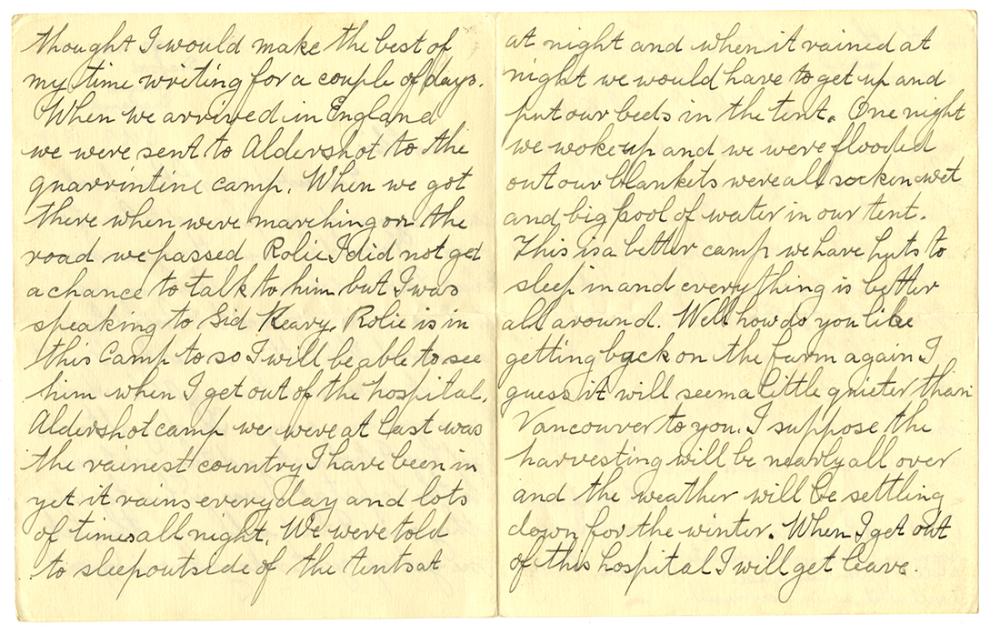 thought I would make the best of
my time writing for a couple of days.
When we arrived in England
we were sent to Aldershot to the
quarrintine camp. When we got
there when were marching on the
road we passed Rolie I did not get
a chance to talk to him but I was
speaking to Sid Keary. Rolie is in
this camp to so I will be able to see
him when I get out of the hospital.
Aldershot camp we were at last was
the rainest country I have been in
yet it rains every day and lots
of times all night. We were told
to sleep outside of the tents at
at night and when it rained at
night we would have to get up and
put our beds in the tent. One night
we woke up and we were flooded
out our blankets were all socken wet
and big pool of water in our tent.
This is a better camp we have huts to
sleep in and everything is better
all around. Well how do you like
getting back on the farm again I
guess it will seem a little quieter than
Vancouver to you. I suppose the
harvesting will be nearly all over
and the weather will be settling
down for the winter. When I get out
of this hospital I will get leave.